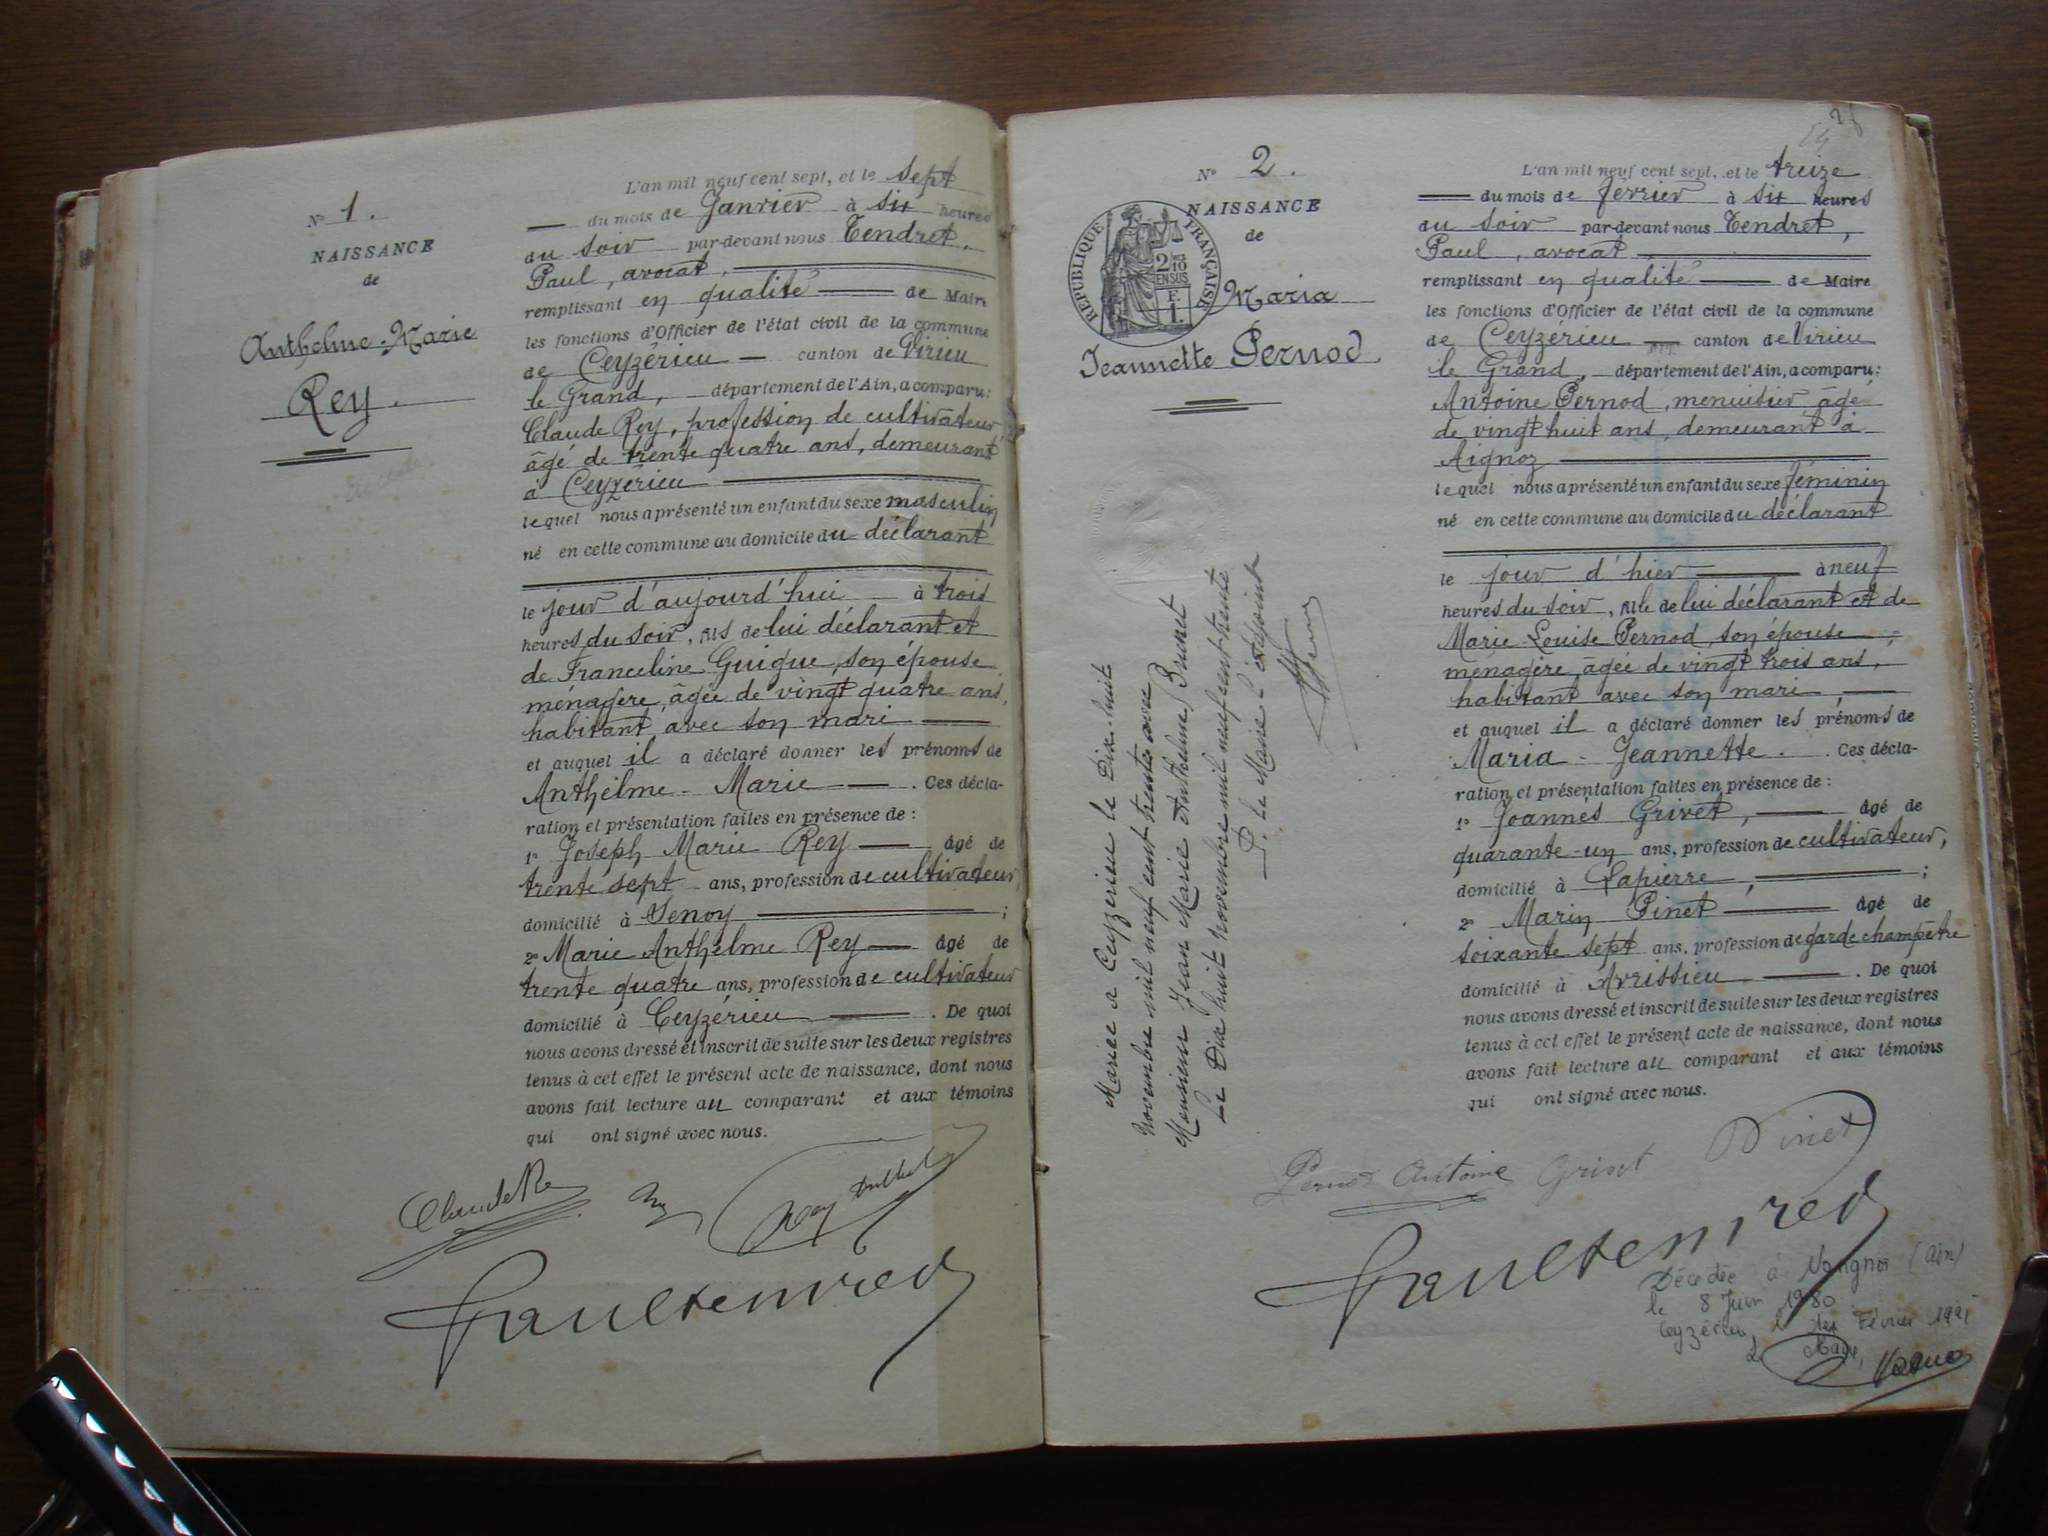 N° 1.
NAISSANCE
de
Anthelme-Marie
Rey.
L'an mil neuf cent sept, et le sept
du mois de Janvier à six heures
du soir par-devant nous Tendret,
Paul, avocat,
remplissant en qualité de Maire
les fonctions d'Officier de l'état civil de la commune
de Ceyzérieu canton de Virieu
le Grand, département de l'Ain, a comparu:
Claude Rey, profession de cultivateur
âgé de trente quatre ans, demeurant
à Ceyzérieu
lequel nous a présenté un enfant du sexe masculin
né en cette commune au domicile du déclarant
le jour d'aujourd'hui à trois
heures du soir, fils de lui déclarant et
de Franceline Guigue, son épouse
ménagère, âgée de vingt quatre ans,
habitant avec son mari
et auquel il a déclaré donner les prénoms de
Anthelme-Marie. Ces décla-
ration et présentation faites en présence de :
1° Joseph Marie Rey âgé de
trente sept ans, profession de cultivateur
domicilié à Senoy ;
2° Marie Anthelme Rey âgé de
trente quatre ans, profession de cultivateur
domicilié à Ceyzérieu. De quoi
nous avons dressé et inscrit de suite sur les deux registres
tenus à cet effet le présent acte de naissance, dont nous
avons fait lecture au comparant et aux témoins
qui ont signé avec nous.
Claude Rey
Rey
N° 2.
NAISSANCE
de
REPUBLIQUE FRANÇAISE
Maria
Jeannette Pernod
Mariée à Ceyzérieu le Dix-huit
novembre mil neuf cent trente avec
Monsieur Jean Marie Anthelme Brunet
Le Dix huit novembre mil neuf cent trente
P. le Maire l'adjoint
L'an mil neuf cent sept, et le treize
du mois de février à six heures
du soir par-devant nous Tendret,
Paul, avocat,
remplissant en qualité de Maire
les fonctions d'Officier de l'état civil de la commune
de Ceyzérieu canton de Virieu
le Grand, département de l'Ain, a comparu:
Antoine Pernod, menuisier âgé
de vingt huit ans, demeurant à
Aignoz
lequel nous a présenté un enfant du sexe féminin
né en cette commune au domicile du déclarant
le jour d'hier à neuf
heures du soir, fille de lui déclarant et de
Marie Louise Pernod, son épouse,
ménagère, âgée de vingt trois ans,
habitant avec son mari,
et auquel il a déclaré donner les prénoms de
Maria-Jeannette. Ces décla-
ration et présentation faites en présence de :
1° Joannès Grivet, âgé de
quarante-un ans, profession de cultivateur,
domicilié à Lapierre, ;
2° Marin Pinet âgé de
soixante sept ans, profession de garde champêtre
domicilié à Avrissieu. De quoi
nous avons dressé et inscrit de suite sur les deux registres
tenus à cet effet le présent acte de naissance, dont nous
avons fait lecture au comparant et aux témoins
qui ont signé avec nous.
Pernod Antoine Grivet Pinet
Décédée à (Ain)
le 8 Juin 1980
Ceyzérieu, le Février 1981
Le Maire,